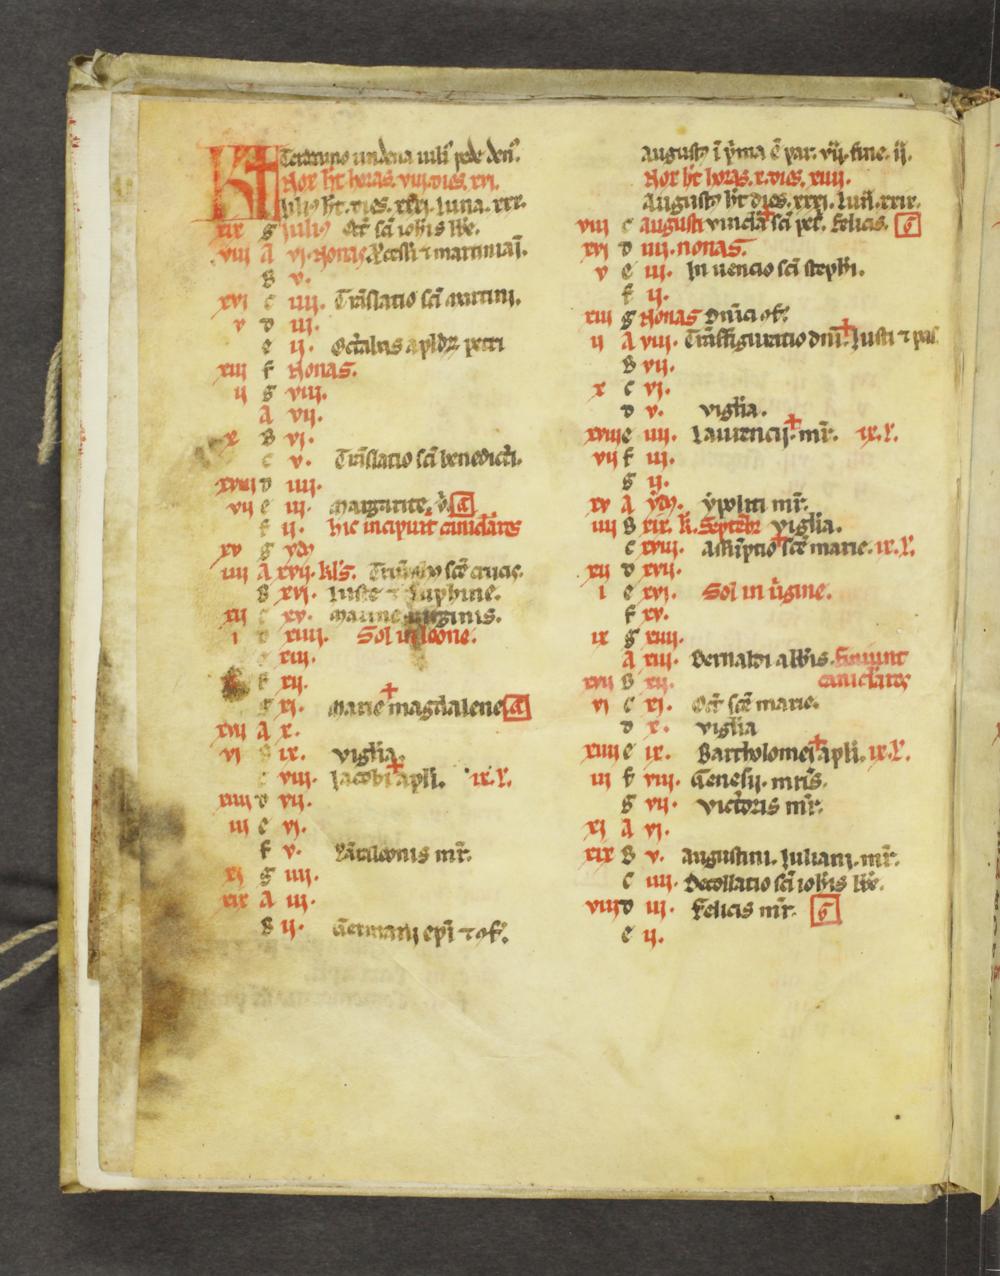 KL Terdeno undena iuli pede den⁹.
Nox h̄t horas. viii. dies. xvi.
Iulius h̄t. dies. xxxi. luna. xxx.
xix g Julius Oct̄ sc̄i ioh̄is
viii A vi. Nonas ⁊ martiniani.
B v.
xvi c iiii. Trāslatio sc̄i martini.
v d iii.
e ii. Octabas ap̄lorꝝ petri
xiii f Nonas.
ii g viii.
A vii.
x B vi.
c v. Trāslatio sc̄i benedicti.
xviii d iiii.
vii e iii. Margarite. v̄. C̄
f ii. hic incipiūt caniclāres
xv g ydꝰ
iiii A xvii. kl's. sc̄e crucis.
B xvi. Iuste ⁊ Ruphine.
xii c xv. Marine virginis.
i d xiiii. Sol in leone.
e xiii.
f xii.
g xi. Marie magdalene C̄
xvii A x.
vi B ix. vigl̄ia.
c viii. Iacobi ap̄li. ix. l̄.
xiiii d vii.
iii e vi.
f v. Pātaleonis mr̄.
xi g iiii.
xix A iii.
B ii. Germani ep̄i ⁊ ꝯf̄.
Augustꝰ ī p̄ma ē par. vij. fine. ij.
Nox h̄t horas. x. dies. xiiii.
Augustꝰ h̄t dies. xxxi. lun̄. xxix.
viii c Augusti vincl̄a sc̄i pet̄. Felicis. G
xvi d iiii. nonas.
v e iii. Inuencio sc̄i steph̄i.
f ii.
xiii g Nonas Dn̄ici ꝯf̄.
ii A viii. Trāsfiguratio dn̄i. Iusti ⁊ pas
B vii.
x c vi.
d v. vigl̄ia.
xviii e iiii. Laurencij. mr̄. ix. l̄.
vii f iii.
g ii.
xv A ydꝰ. ypoliti mr̄.
iiii B xix. k̄. Septēbr̄ vigl̄ia.
c xviii. Assūptio sc̄e marie. ix. l̄.
xii d xvii.
i e xvi. Sol in v̄gine.
f xv.
ix g xiiii.
A xiii. Bernaldi abb̄is. Finiunt
xvii B xii. caniclāres
vi c xi. Oct̄ sc̄e marie.
d x. vigl̄ia
xiiii e ix. Bartholomei ap̄li. ix. l̄.
iii f viii. Genesij. mr̄is.
g vii. victoris mr̄.
xi A vi.
xix B v. Augustini. Iuliani. mr̄.
c iiii. Decollatio sc̄i ioh̄is
viii d iii. Felicis mr̄. G
e ii.